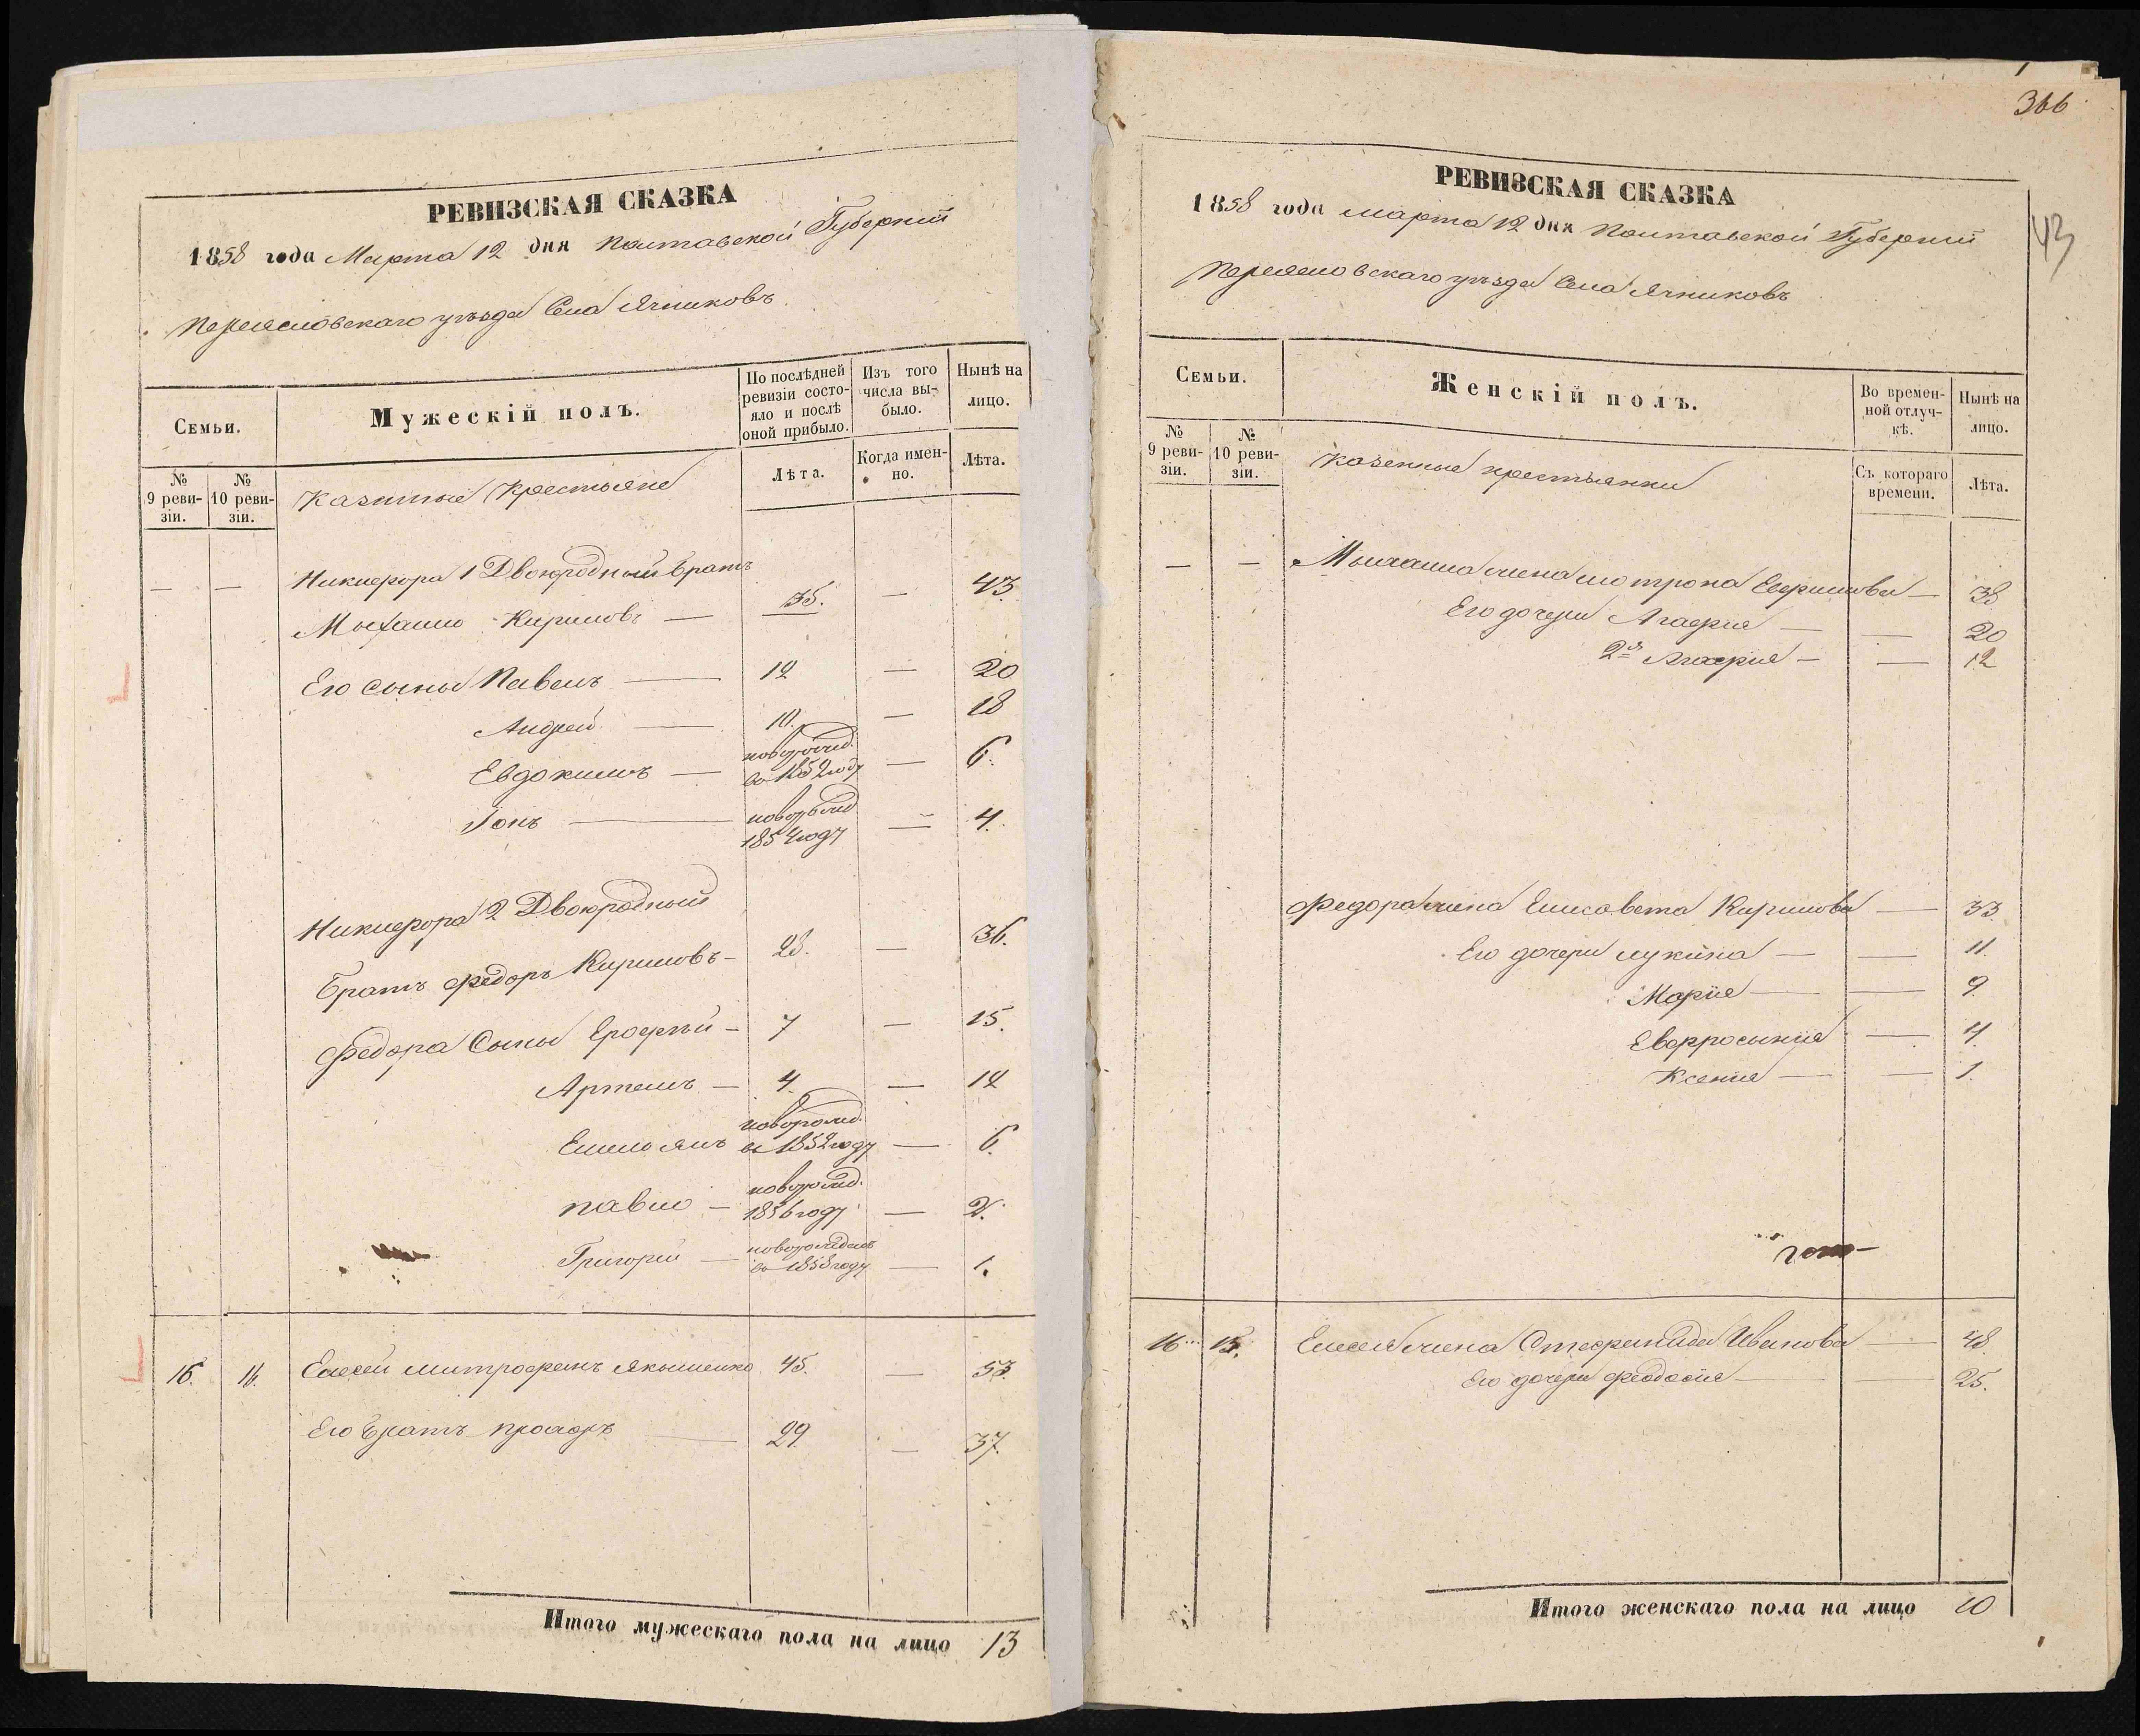 РЕВИЗСКАЯ СКАЗКА
1858 года Марта 12 дня Полтавской Губернии
Переясловскаго уѣзда Села Ячниковъ
Семьи.
Мужескій полъ.
По послѣдней ревизіи состояло и послѣ оной прибыло.
Изъ того числа выбыло.
Нынѣ на лицо.
№ 9 ревизіи.
№ 10 ревизіи.
Казенные Крестьяне
Лѣта.
Когда именно.
Лѣта.
— — Никифора 1 Двоюродный братъ
Михаило Кириловъ — 35. — 43.
Его сыны Павелъ — 12 — 20
Андрей — 10. — 18
Евдокимъ — новорожд. въ 1852 году — 6.
Іонъ — новорожд 1854 году — 4.
Никифора 2 Двоюродный
Братъ Федоръ Кириловъ — 28. — 36.
Федора Сыны Ерофѣй — 7 — 15.
Артемъ — 4. — 12
Емельянъ новорожд. въ 1852 году — 6.
Павло — новорожд. 1856 году — 2.
Григорій — новорожденъ въ 1858 году — 1.
16. 16. Елесей Митрофанъ Якименко 45. — 53
Его Братъ Прохоръ — 29. — 37.
Итого мужескаго пола на лицо 13
366
43
РЕВИЗСКАЯ СКАЗКА
1858 года Марта 12 дня Полтавской Губернии
Переясловскаго уѣзда Села Ячниковъ
Семьи.
Женскій полъ.
Во временной отлучкѣ.
Нынѣ на лицо.
№ 9 ревизіи.
№ 10 ревизіи.
Казенные крестьянки
Съ котораго времени.
Лѣта.
— — Михаила жена Мотрона Ефримова — 38
Его дочери Агафия — — 20
2я Агафия — — 12
Федора жена Елисавета Кирилова — 33.
Его дочери Лукина — — 11.
Марія — — 9.
Евфросинія — 4.
Ксенія — — 1.
16 15. Елесея жена Стефанида Иванова — 48.
Его дочери Феодосія — — 25.
Итого женскаго пола на лицо 10